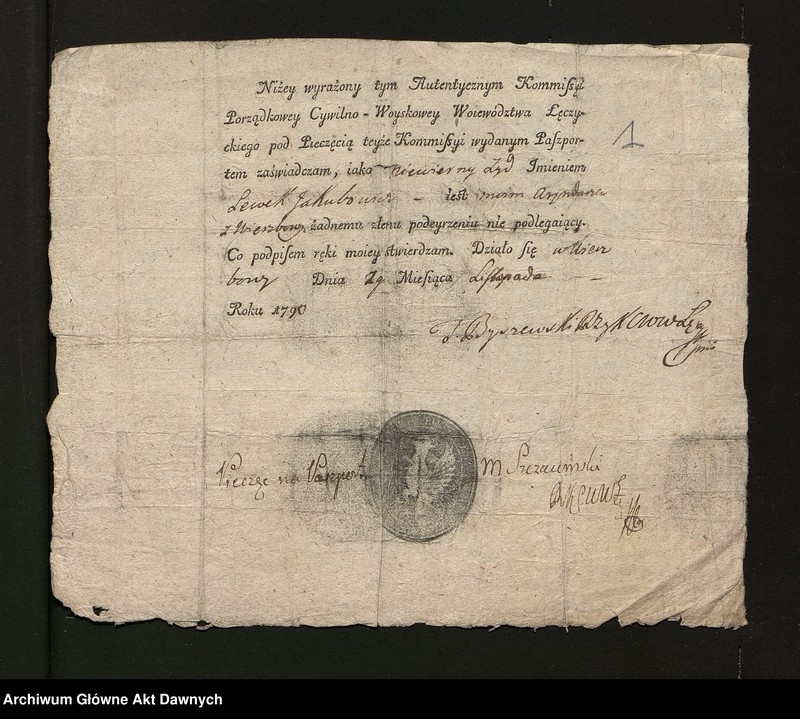 Niżey wyrażony tym Autentycznym Kommissyi
Porządkowey Cywilno-Woyskowey Woiewództwa Łęczy-
ckiego pod Pieczęcią teyże Kommissyi wydanym Paszpor-
tem zaświadczam, iako niewierny Żyd Imieniem
Lewek Jakubowicz - iest moim Aryndarzem
z Wierzbowy, żadnemu złemu podeyrzeniu nie podlegaiący.
Co podpisem ręki moiey stwierdzam. Działo się w Wierz
bowy Dnia 29 Miesiąca Listopada
Roku 1790
1
J. Byszewski
Pieczęć na Paszport
M Szczawiński
Archiwum Główne Akt Dawnych